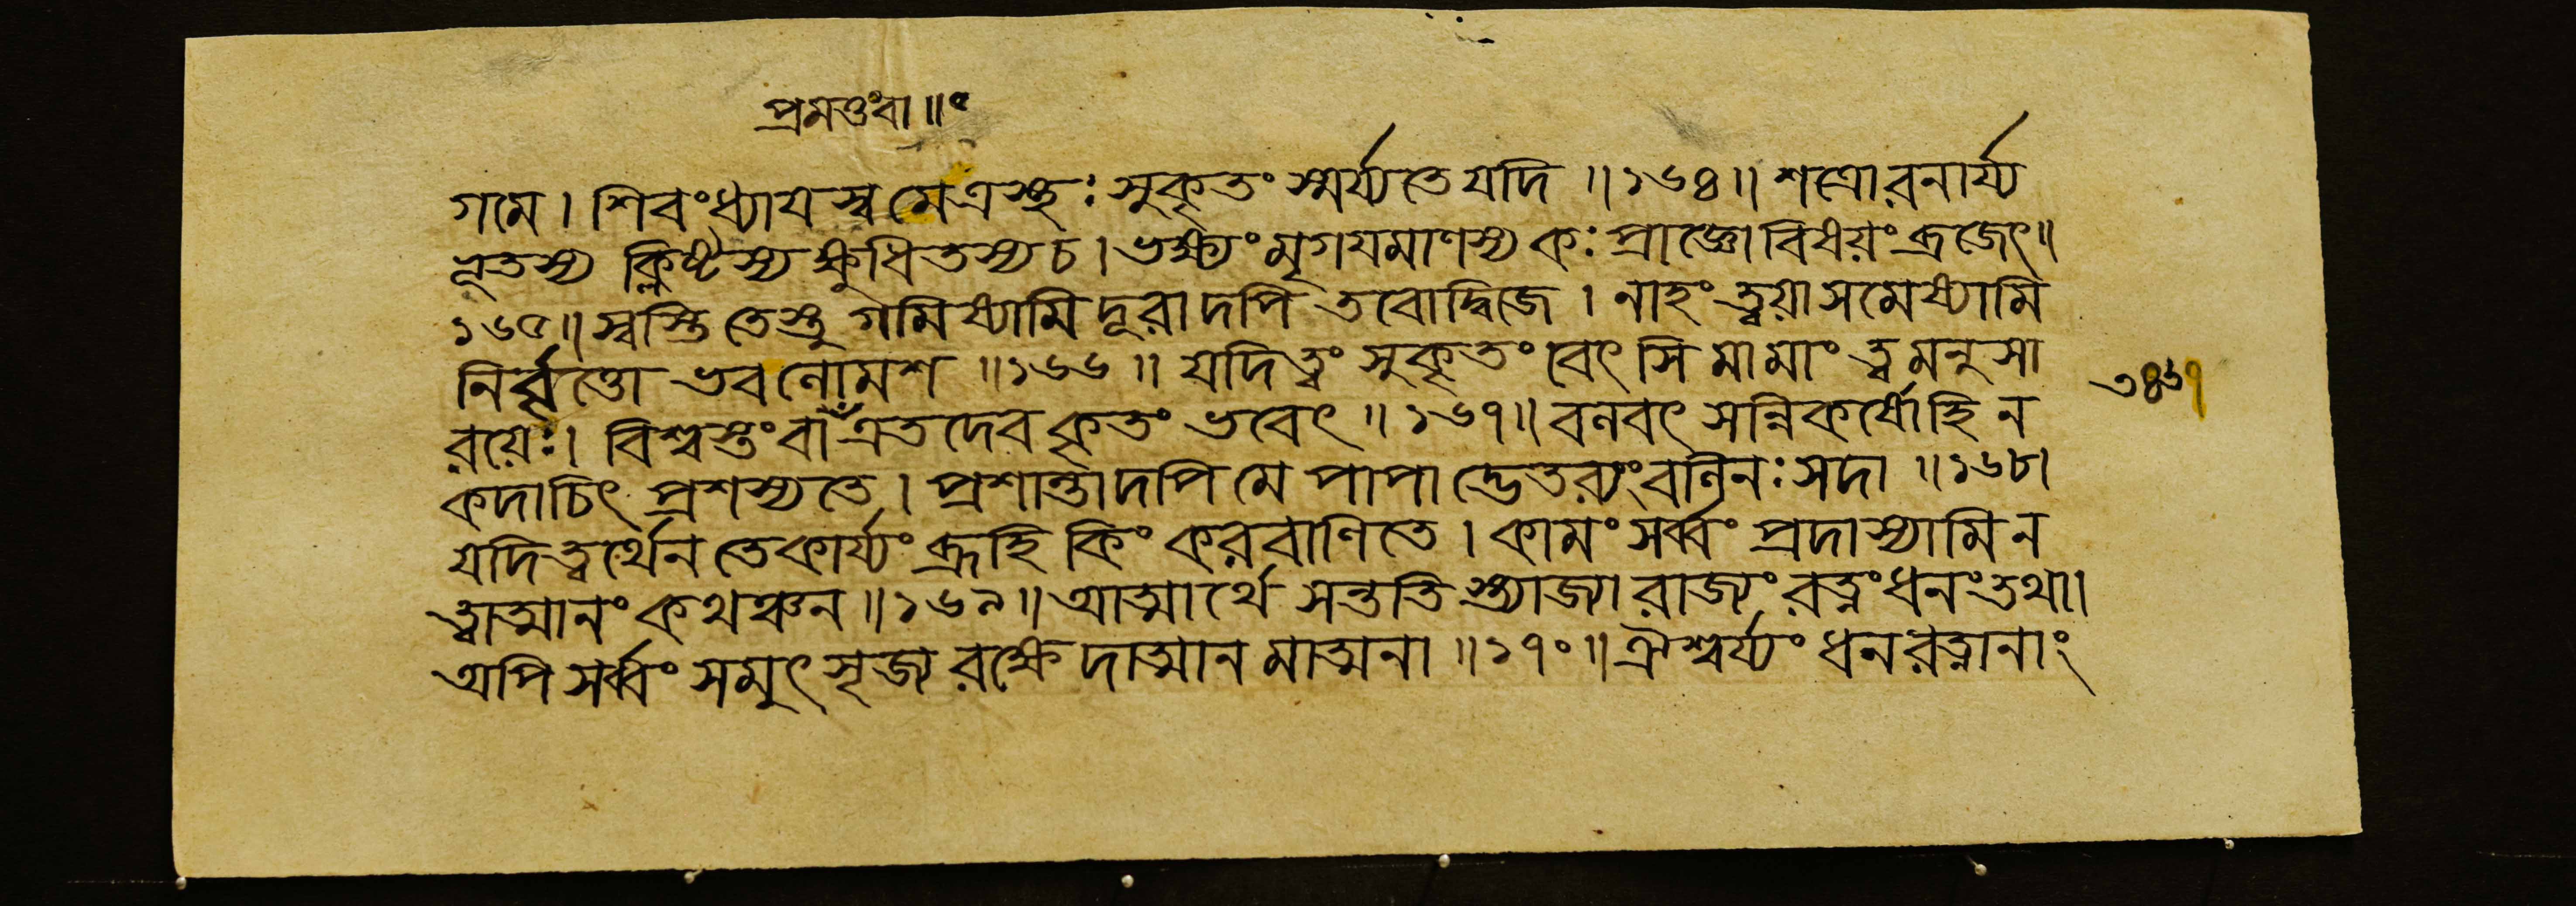 প্রমত্তংবা॥৭
গমে। শিবংধ্যাযস্বমেত্রস্থঃসুকৃতং স্মর্য্যতেযদি ॥১৬৪॥ শত্রোরনার্য্য
নৃতস্য ক্লিষ্টস্যক্ষুধিতস্যচ।ভক্ষ্যংমৃগযমাণস্যকঃপ্রাজ্ঞোবিষয়ংব্রজেৎ॥
১৬৫॥স্বস্তিতেস্তুগমিষ্যামিদূরাদপি তবোদ্বিজে। নাহংত্বয়াসমেষ্যামি
নির্বৃত্তো ভবলোমশ ॥১৬৬॥ যদিত্বং সুকৃতংবেৎসিমামাংত্বমনুসা
৩৪৬৭
রয়েঃ। বিশ্বস্তংবাঁএতদেবকৃতং ভবেৎ ॥১৬৭॥বলবৎ সন্নিকর্ষোহিন
কদাচিৎ প্রশস্যতে। প্রশান্তাদপিমে পাপাদ্ভেতব্যংবলিনঃসদা ॥১৬৮।
যদিত্বর্থেনতেকার্য্যংব্রূহি কিংকরবাণিতে। কামংসর্ব্বং প্রদাস্যামিন
ত্বাত্মানংকথঞ্চন॥১৬৯॥আত্মার্থে সন্ততিস্ত্যাজ্যা রাজ্যংরত্নংধনংতথা।
অপিসর্ব্বংসমুৎসৃজ্য রক্ষেদাত্মানমাত্মনা ॥১৭০॥ঐশ্বর্য্যংধনরত্নানাং